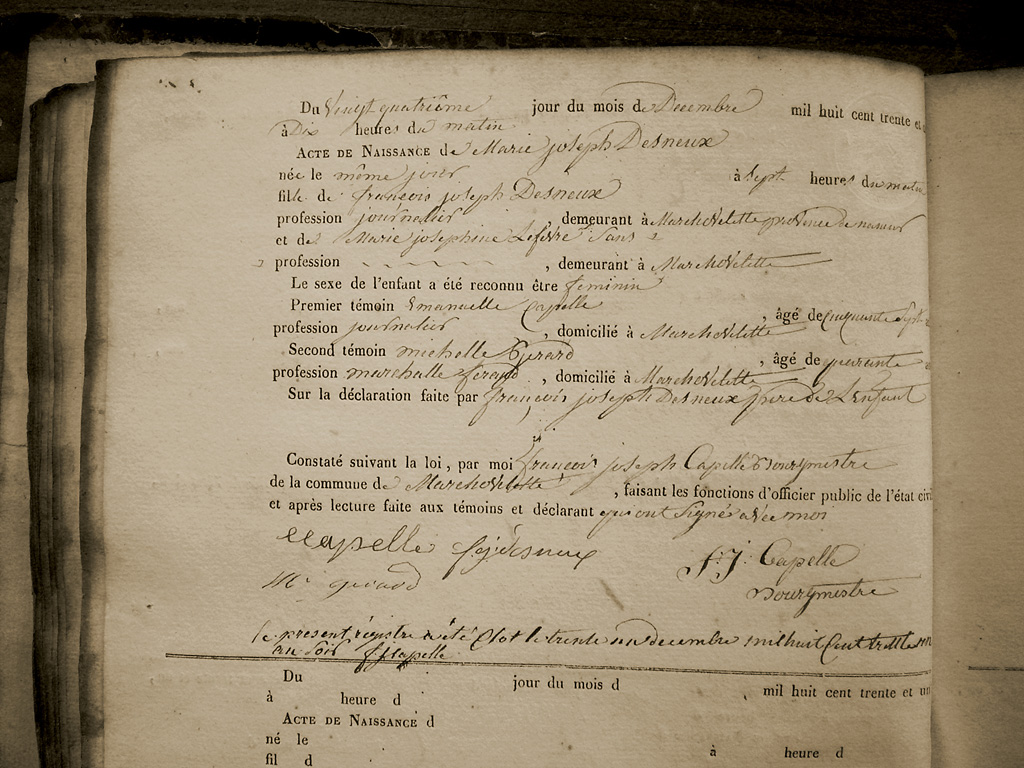 Du Vingt quatrième jour du mois de Decembre mil huit cent trente et u
à Dix heures du matin
ACTE DE NAISSANCE de Marie joseph Desneux
née le même jour à sept heures du matin
fille de françois joseph Desneux
profession journalier, demeurant à MarchoVelette province de namur
et de Marie josephine Lefevre sans
profession , demeurant à MarchoVelette
Le sexe de l'enfant a été reconnu être feminin
Premier témoin Emanuelle Capelle, âgé de cinquante sept
profession journalier, domicilié à MarchoVelette
Second témoin michelle Gerard, âgé de quarante
profession marchalle ferand, domicilié à MarchoVelette
Sur la déclaration faite par françois joseph Desneux père de L'enfant
Constaté suivant la loi, par moi françois joseph Capelle Bourgmestre
de la commune de MarchoVelette, faisant les fonctions d'officier public de l'état civi
et après lecture faite aux témoins et déclarant qui ont signé avec moi
Capelle fjdesneux f. J. Capelle
M. gerard Bourgmestre
le present régistre a été Clot le trente un decembre mil huit Cent trente un
au soir Capelle
Du jour du mois d mil huit cent trente et un
à heure d
ACTE DE NAISSANCE d
né le à heure d
fil d